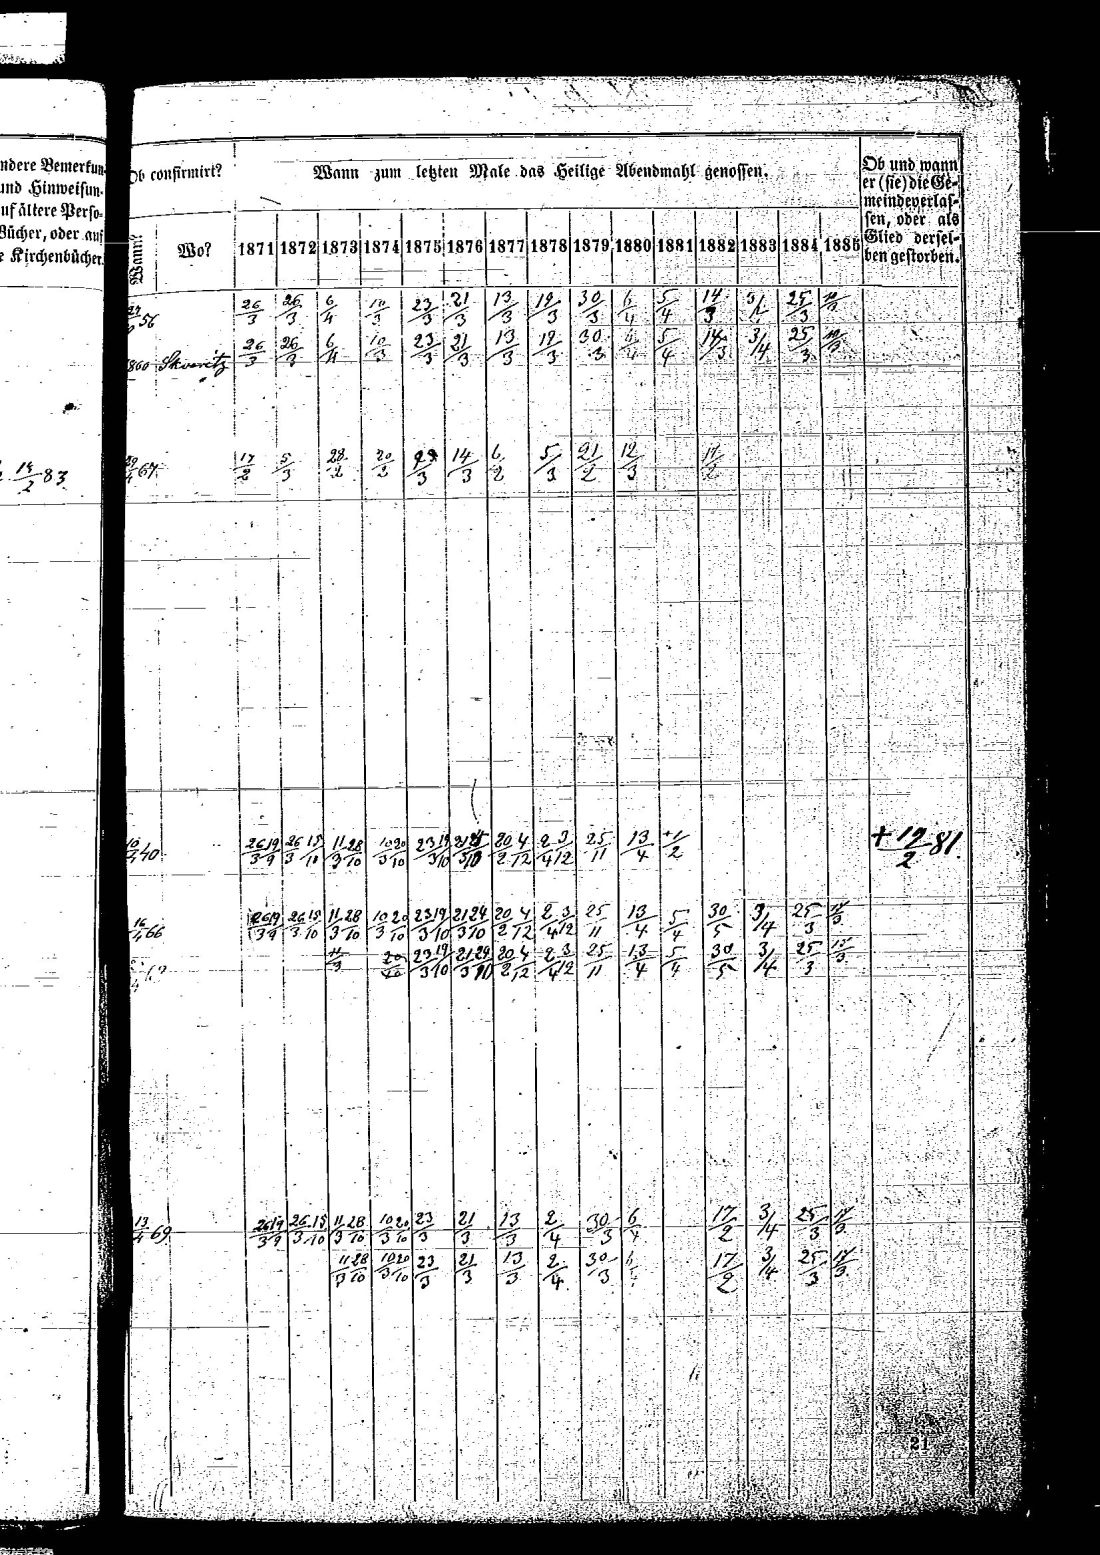 ndere Bemerkun-
und Hinweisun-
uf ältere Perso-
Bücher, oder auf
e Kirchenbücher.
Ob confirmirt?
Wann?
Wo?
Wann zum letzten Male das Heilige Abendmahl genossen.
1871 1872 1873 1874 1875 1876 1877 1878 1879 1880 1881 1882 1883 1884 1885
Ob und wann
er (sie) die Ge-
meinde verlas-
sen, oder als
Glied dersel-
ben gestorben.
56 26/3 26/3 6/4 10/3 23/3 21/3 13/3 19/3 30/3 6/4 5/4 14/3 3/4 25/3
1860 26/3 26/3 6/4 10/3 23/3 21/3 13/3 19/3 30/3 6/4 5/4 14/3 3/4 25/3
83 67 17/2 5/3 28/2 20/2 23/3 14/3 6/2 5/3 21/2 12/3 17/2
10/4 40 26/3 19/9 26/3 15/10 11/3 28/10 10/3 20/10 23/3 19/10 20/2 4/12 2/4 3/12 25/11 13/4 +1/2 + 19/2 81.
16/4 66 26/3 19/9 26/3 15/10 11/3 28/10 10/3 20/10 23/3 19/10 21/3 24/10 20/2 4/12 2/4 3/12 25/11 13/4 5/4 30/5 3/4 25/3 17/3
11/3 20/10 23/3 19/10 21/3 24/10 20/2 4/12 2/4 3/12 25/11 13/4 5/4 30/5 3/4 25/3 17/3
13/4 69 26/3 19/9 26/3 15/10 11/3 28/10 10/3 20/10 23/3 21/3 13/3 2/4 30/3 6/4 17/2 3/4 25/3 17/3
11/3 28/10 10/3 20/10 23/3 21/3 13/3 2/4 30/3 17/2 3/4 25/3 17/3
21